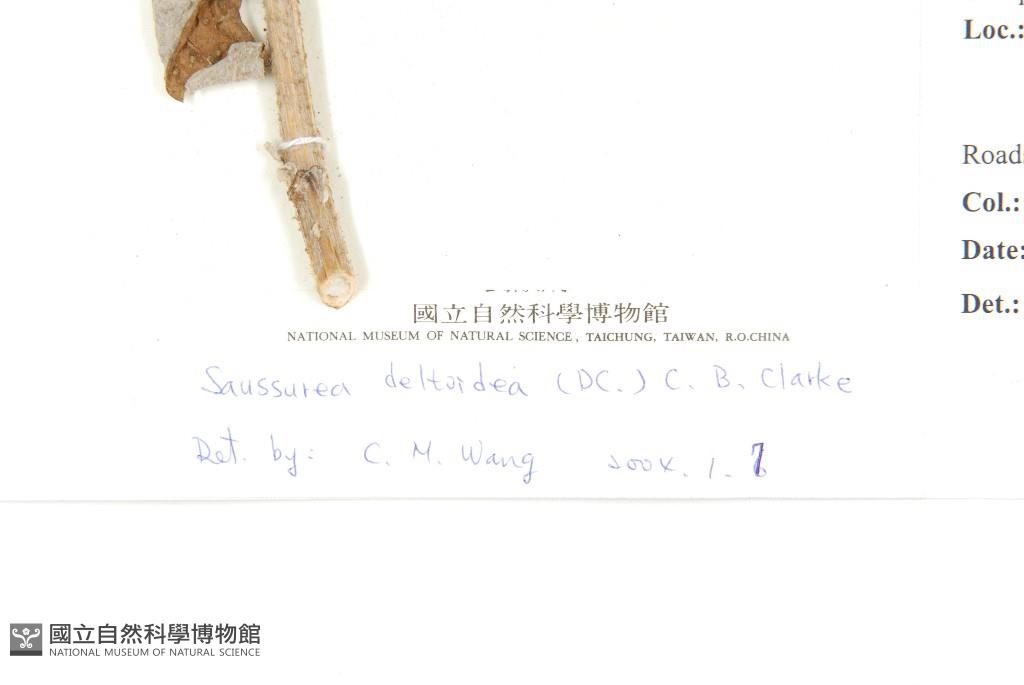 Loc.:
Col.:
Date:
Det.:
國立自然科學博物館
NATIONAL MUSEUM OF NATURAL SCIENCE, TAICHUNG, TAIWAN, R.O.CHINA
Saussurea deltoidea (DC.) C. B. Clarke
Det. by: C. M. Wang
國立自然科學博物館
NATIONAL MUSEUM OF NATURAL SCIENCE